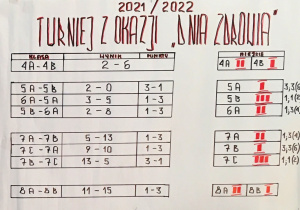 2021/2022
TURNIEJ Z OKAZJI „DNIA ZDROWIA"
KLASA WYNIK PUNKTY MIEJSCE
4A-4B 2-6 4A II 4B I
5A-5B 2-0 3-1 5A I
6A-5A 3-5 1-3 5B III
5B-6A 2-8 1-3 6A II
7A-7B 5-13 1-3 7A II
7C-7A 9-10 1-3 7B I
7B-7C 13-5 3-1 7C III
8A-8B 11-15 1-3 8A II 8B I